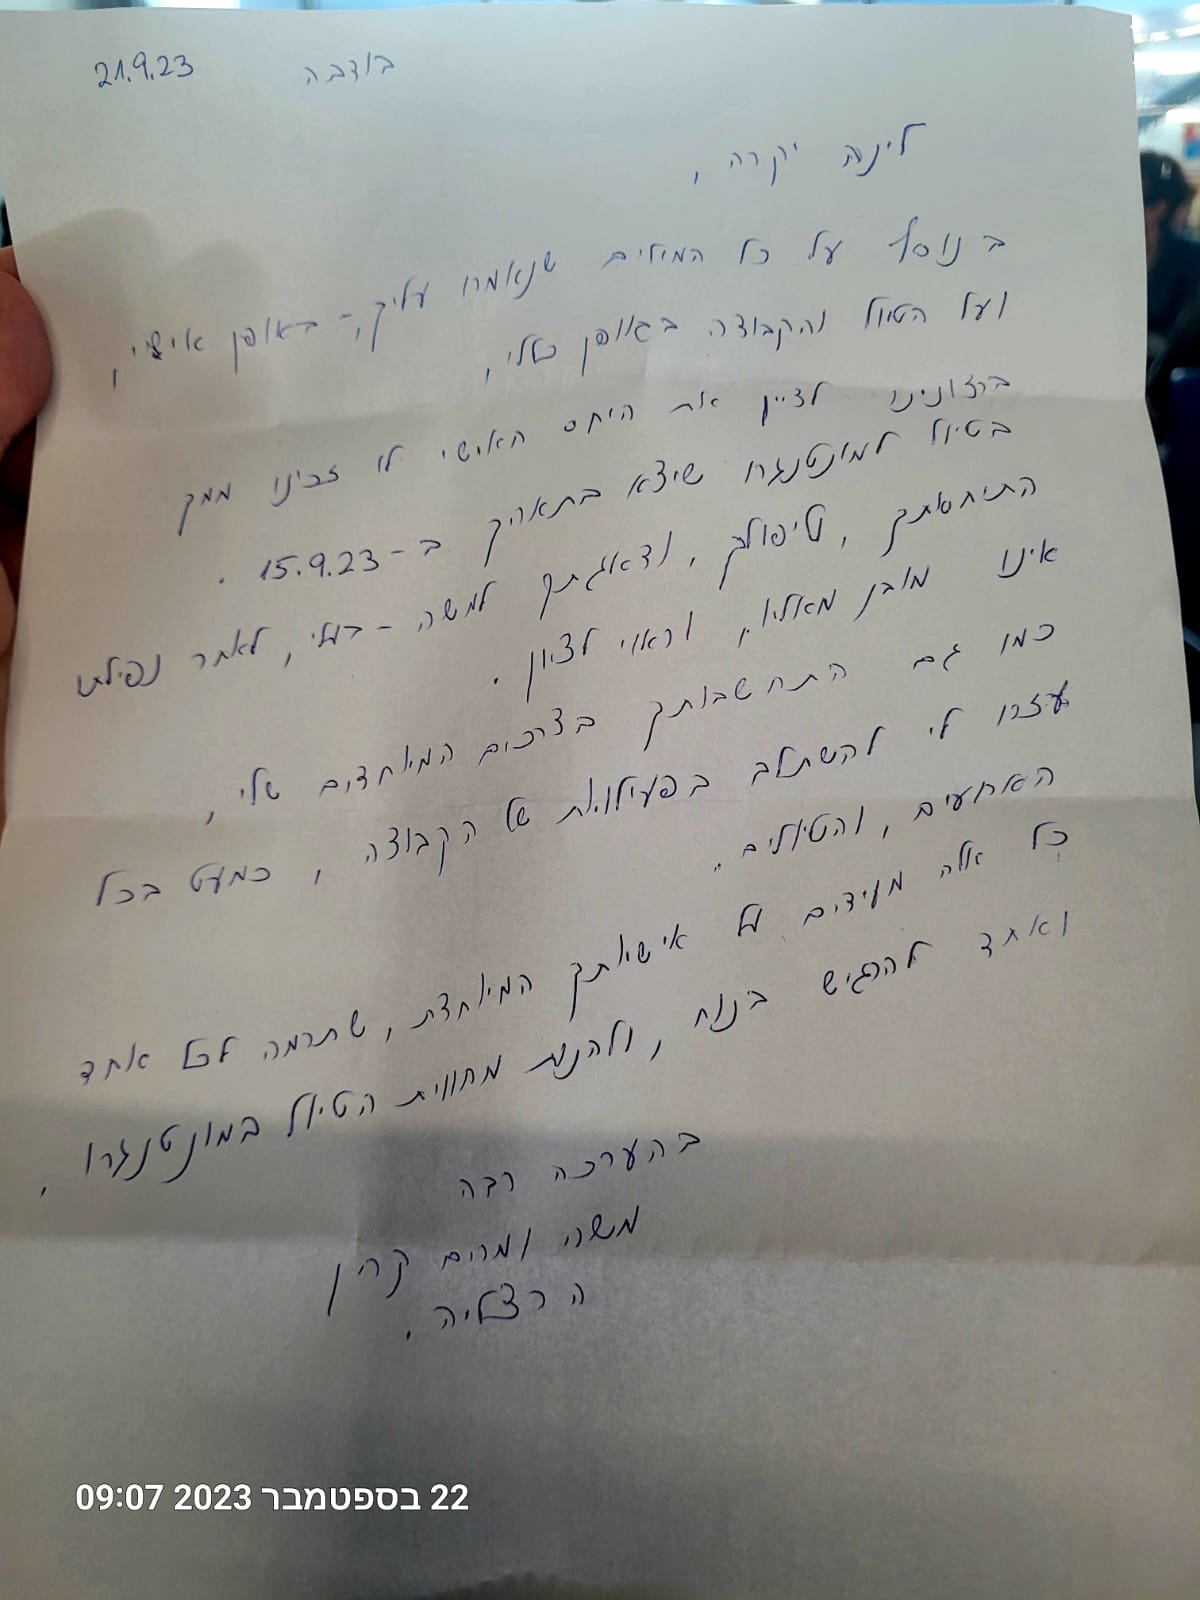 בודבה 21.9.23
לינה יקרה,
בנוסף על כל המילים שנאמרו עליך,- באופן אישי,
ועל הטיול והקבוצה באופן כללי,
ברצונינו לציין את היחס האישי לו זכינו ממך
בטיול למונטנגרו שיצא בתאריך ב-15.9.23.
התיחסותך, טיפולך, ודאגתך למשה-בעלי, לאחר נפילתו
אינו מובן מאליו, וראוי לציון.
כמו גם התחשבותך בצרכים המיוחדים שלי,
עזרו לי להשתלב בפעילויות של הקבוצה, כמעט בכל
הארועים, והטיולים.
כל אלה מעידים על אישיותך המיוחדת, שתרמה לכל אחד
ואחד להרגיש בנוח, ולהנות מחווית הטיול במונטנגרו.
בהערכה רבה
משה ומרים
הרצליה.
22 בספטמבר 2023 09:07